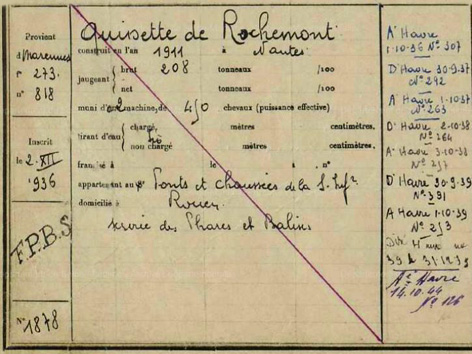 Provient
d'Marennes
f° 273.
n° 818
Inscrit
le 2-XII
1936
F.P.B.S
N° 1878
Quinette de Rochemont
construit en l'an 1911 à Nantes
jaugeant brut 208 tonneaux /100
net tonneaux /100
muni d'une 2 machine, de 450 chevaux (puissance effective)
tirant d'eau chargé mètres centimètres.
non chargé mètres centimètres.
francisé à le à n°
appartenant aux Ponts et Chaussées de la S. Infre
domicilié à Rouen
service des Phares et Balises
A' Havre
1-10-36 N° 307
D' Havre 30-9-37
N° 242
A' Havre 1-10-37
N° 263
D' Havre 2-10-38
N° 264
A' Havre 3-10-38
N° 257
D' Havre 30-9-39
N° 391
A' Havre 1-10-39
N° 253
39 31-12-39
A° Havre
14.10.44
N° 126